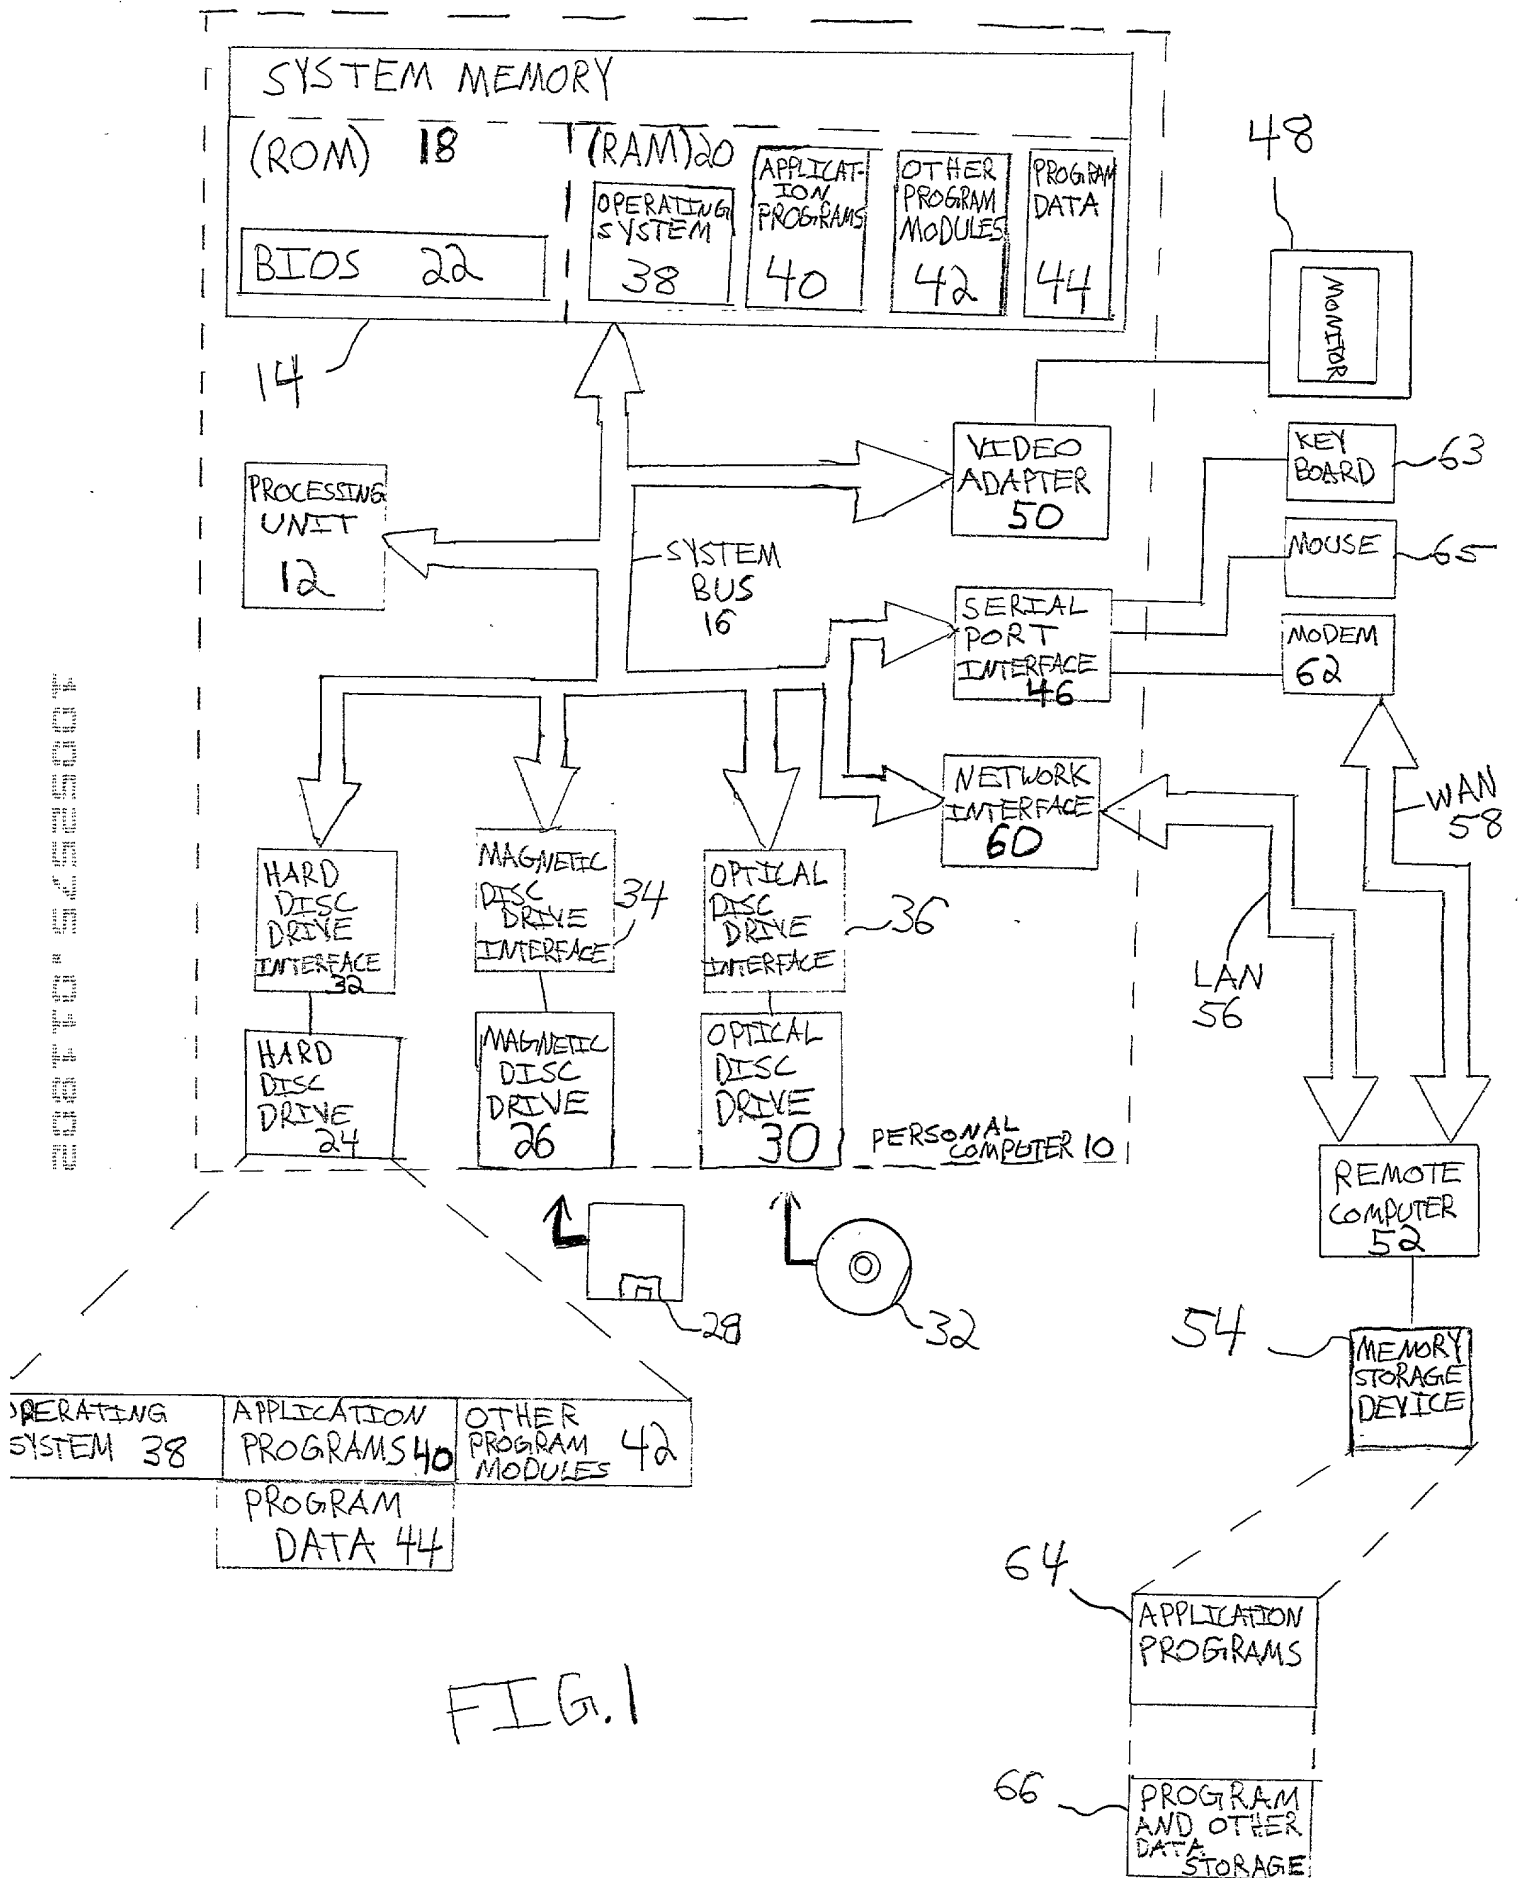 SYSTEM MEMORY
(ROM) 18
BIOS 22
(RAM) 20
OPERATING
SYSTEM
38
APPLICAT-
ION
PROGRAMS
40
OTHER
PROGRAM
MODULES
42
PROGRAM
DATA
44
14
48
MONITOR
PROCESSING
UNIT
12
SYSTEM
BUS
16
VIDEO
ADAPTER
50
KEY
BOARD
63
MOUSE
65
SERIAL
PORT
INTERFACE
46
MODEM
62
NETWORK
INTERFACE
60
WAN
58
LAN
56
HARD
DISC
DRIVE
INTERFACE
32
MAGNETIC
DISC
DRIVE
INTERFACE
34
OPTICAL
DISC
DRIVE
INTERFACE
36
HARD
DISC
DRIVE
24
MAGNETIC
DISC
DRIVE
26
OPTICAL
DISC
DRIVE
30
PERSONAL
COMPUTER 10
REMOTE
COMPUTER
52
28
32
54
MEMORY
STORAGE
DEVICE
OPERATING
SYSTEM 38
APPLICATION
PROGRAMS 40
OTHER
PROGRAM
MODULES
42
PROGRAM
DATA 44
64
APPLICATION
PROGRAMS
66
PROGRAM
AND OTHER
DATA
STORAGE
FIG. 1